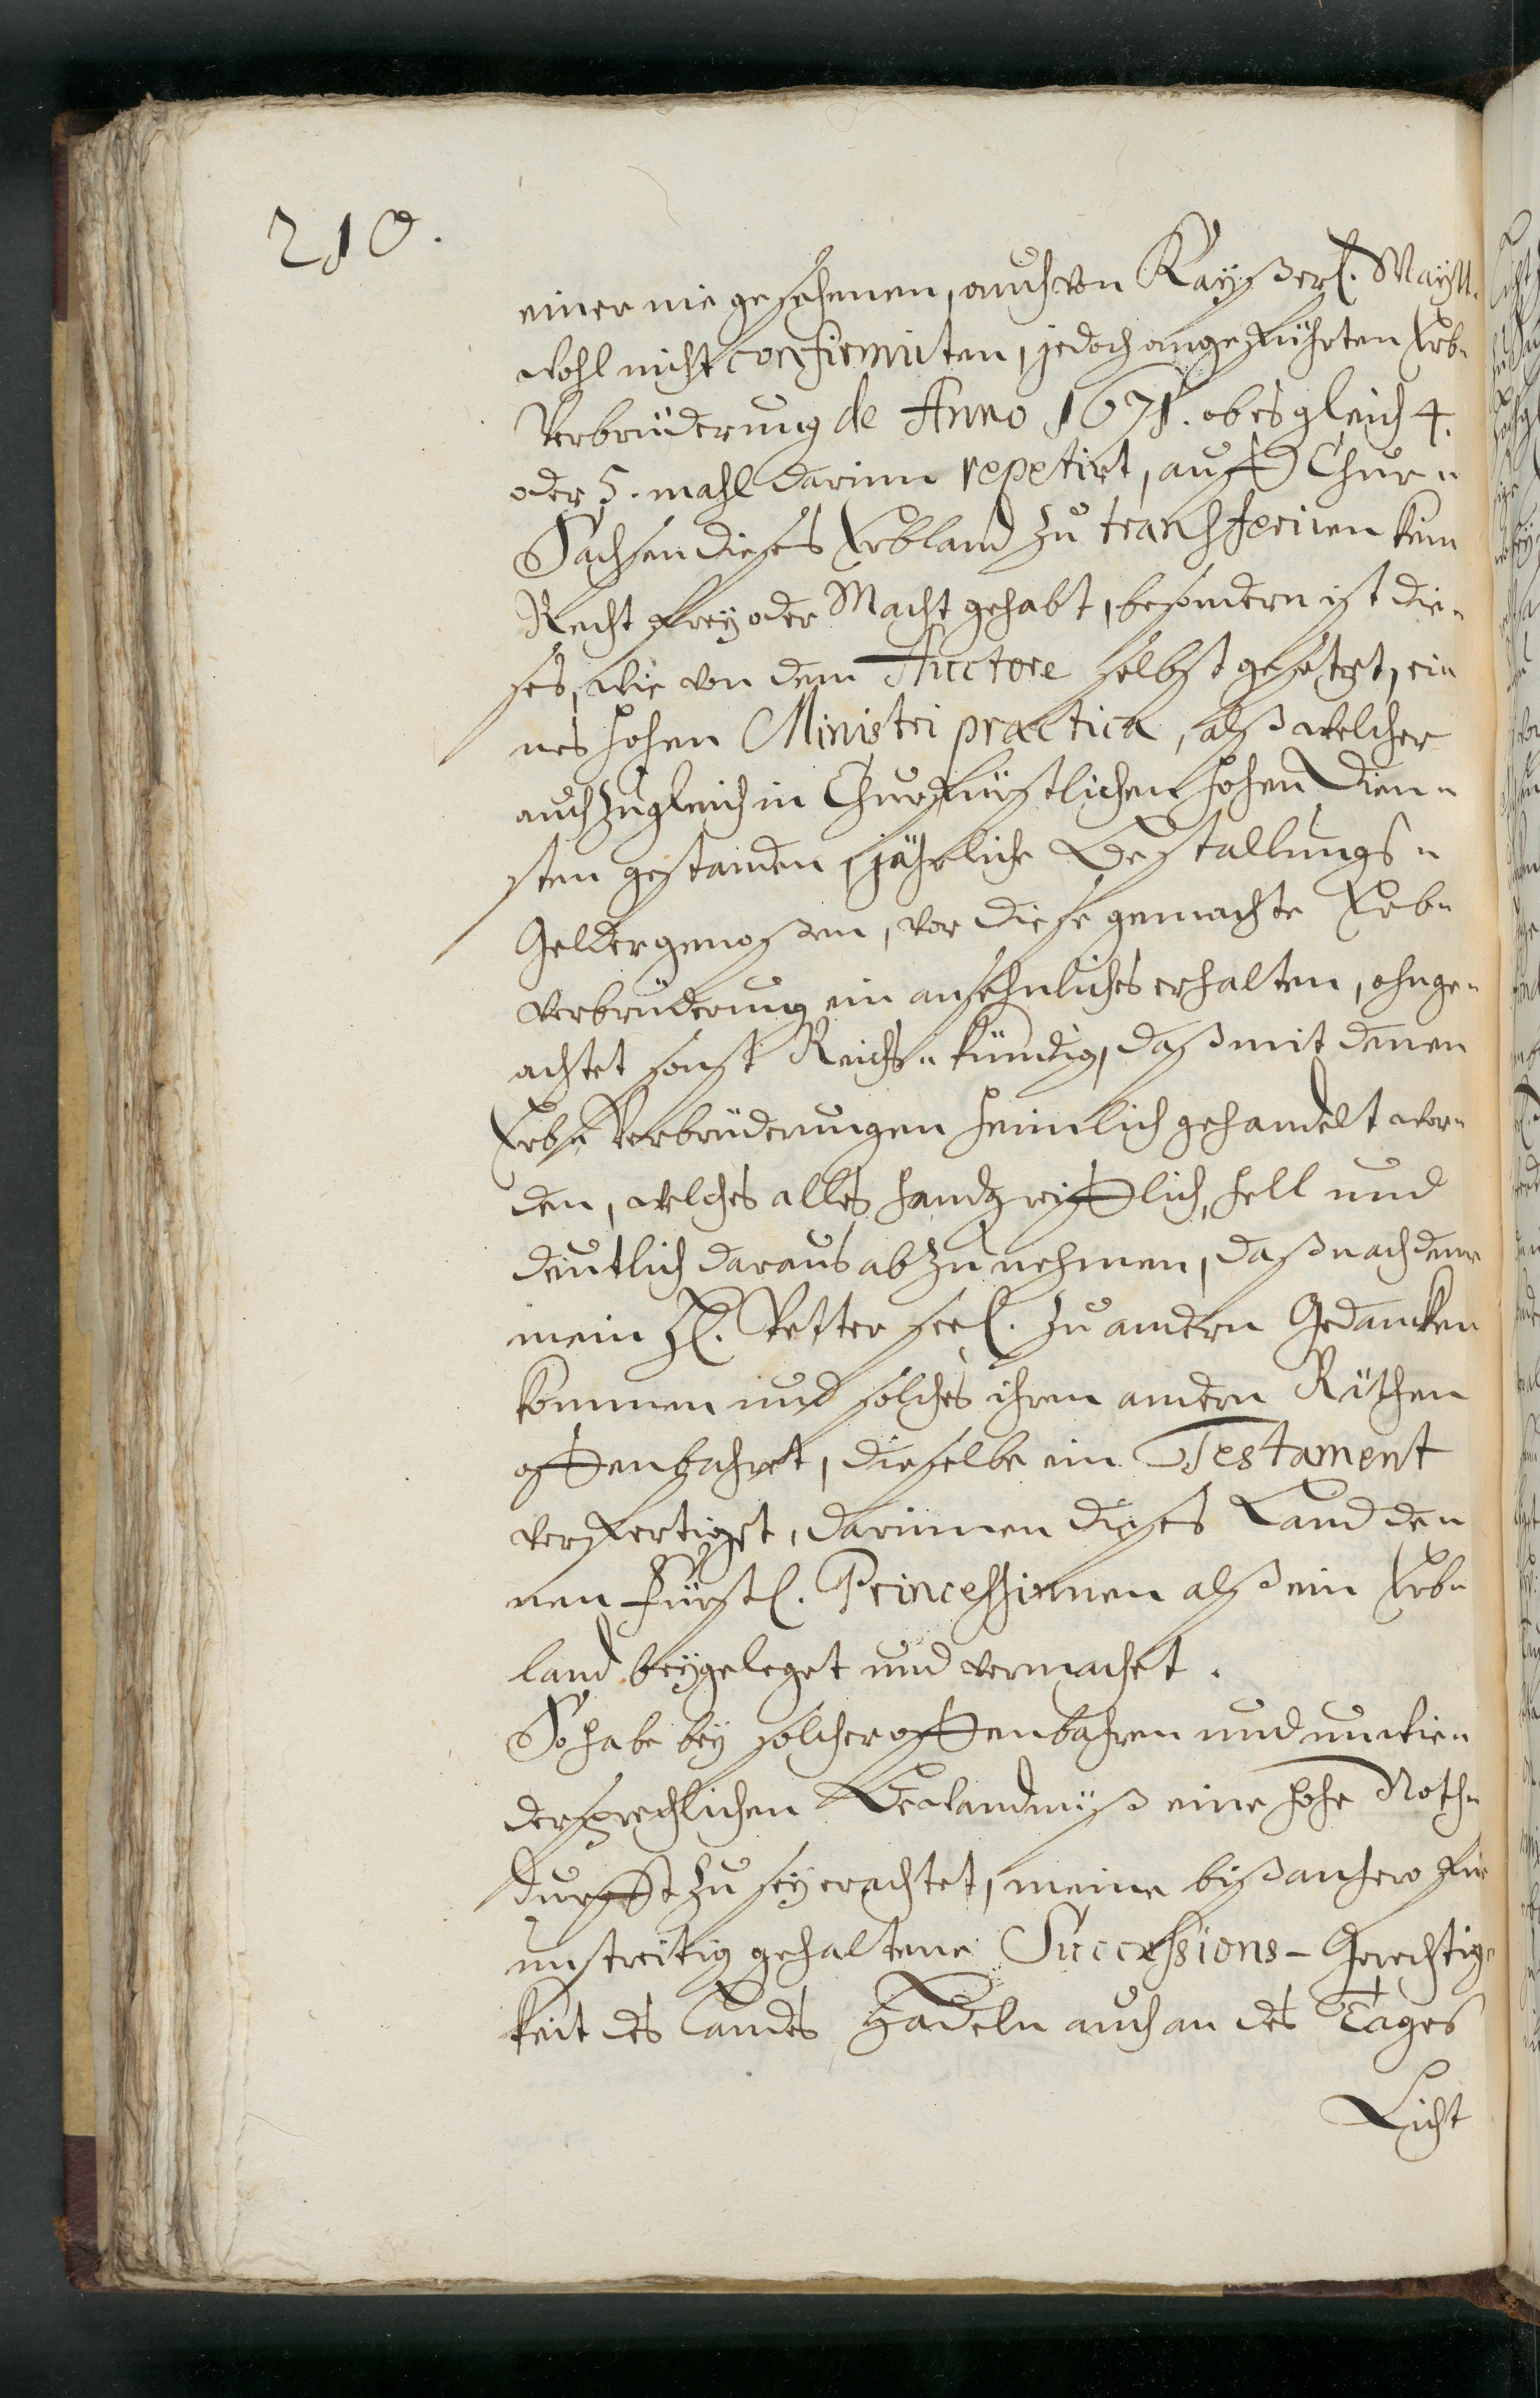 210.
einer nie gesehenen, auch von Kayßerl. Maytt.
wohl nicht confirmirten, jedoch angeführten Erb-
Verbrüderung de Anno 1671. ob es gleich 4.
oder 5. mahl darinn repetirt, auff Chur-
Sachsen dieses Erbland zu transferiren kein
Recht frey oder Macht gehabt, besondern ist die-
ses, wie von dem Auctore selbst gesetzet, ei-
nes hohen Ministri practica, alß welcher
auch zugleich in Churfürstlichen hohen Dien-
sten gestanden, jährliche Bestallungs-
Gelder genoßen, vor diese gemachte Erb-
verbrüderung ein ansehnliches erhalten, ohnge-
achtet sonst Reichs-kündig, daß mit denen
Erb-Verbrüderungen heimlich gehandelt wor-
den, welches alles handgreifflich, hell und
deutlich daraus abzunehmen, daß nachdem
mein H. Vetter seel. zu andern Gedancken
kommen und solches ihren andern Räthen
offenbahret, dieselbe ein Testament
verfertiget, darinnen dieses Land de-
nen Fürstl. Princessinnen alß ein Erb-
land beygeleget und vermachet.
So habe bey solcher offenbahren und unwie-
dersprechlichen Bewandnüß eine hohe Noth-
durfft zu sey erachtet, meine bißanhero für
unstreitig gehaltene Successions-Gerechtig-
keit des Landes Hadeln auch an des Tages
Licht